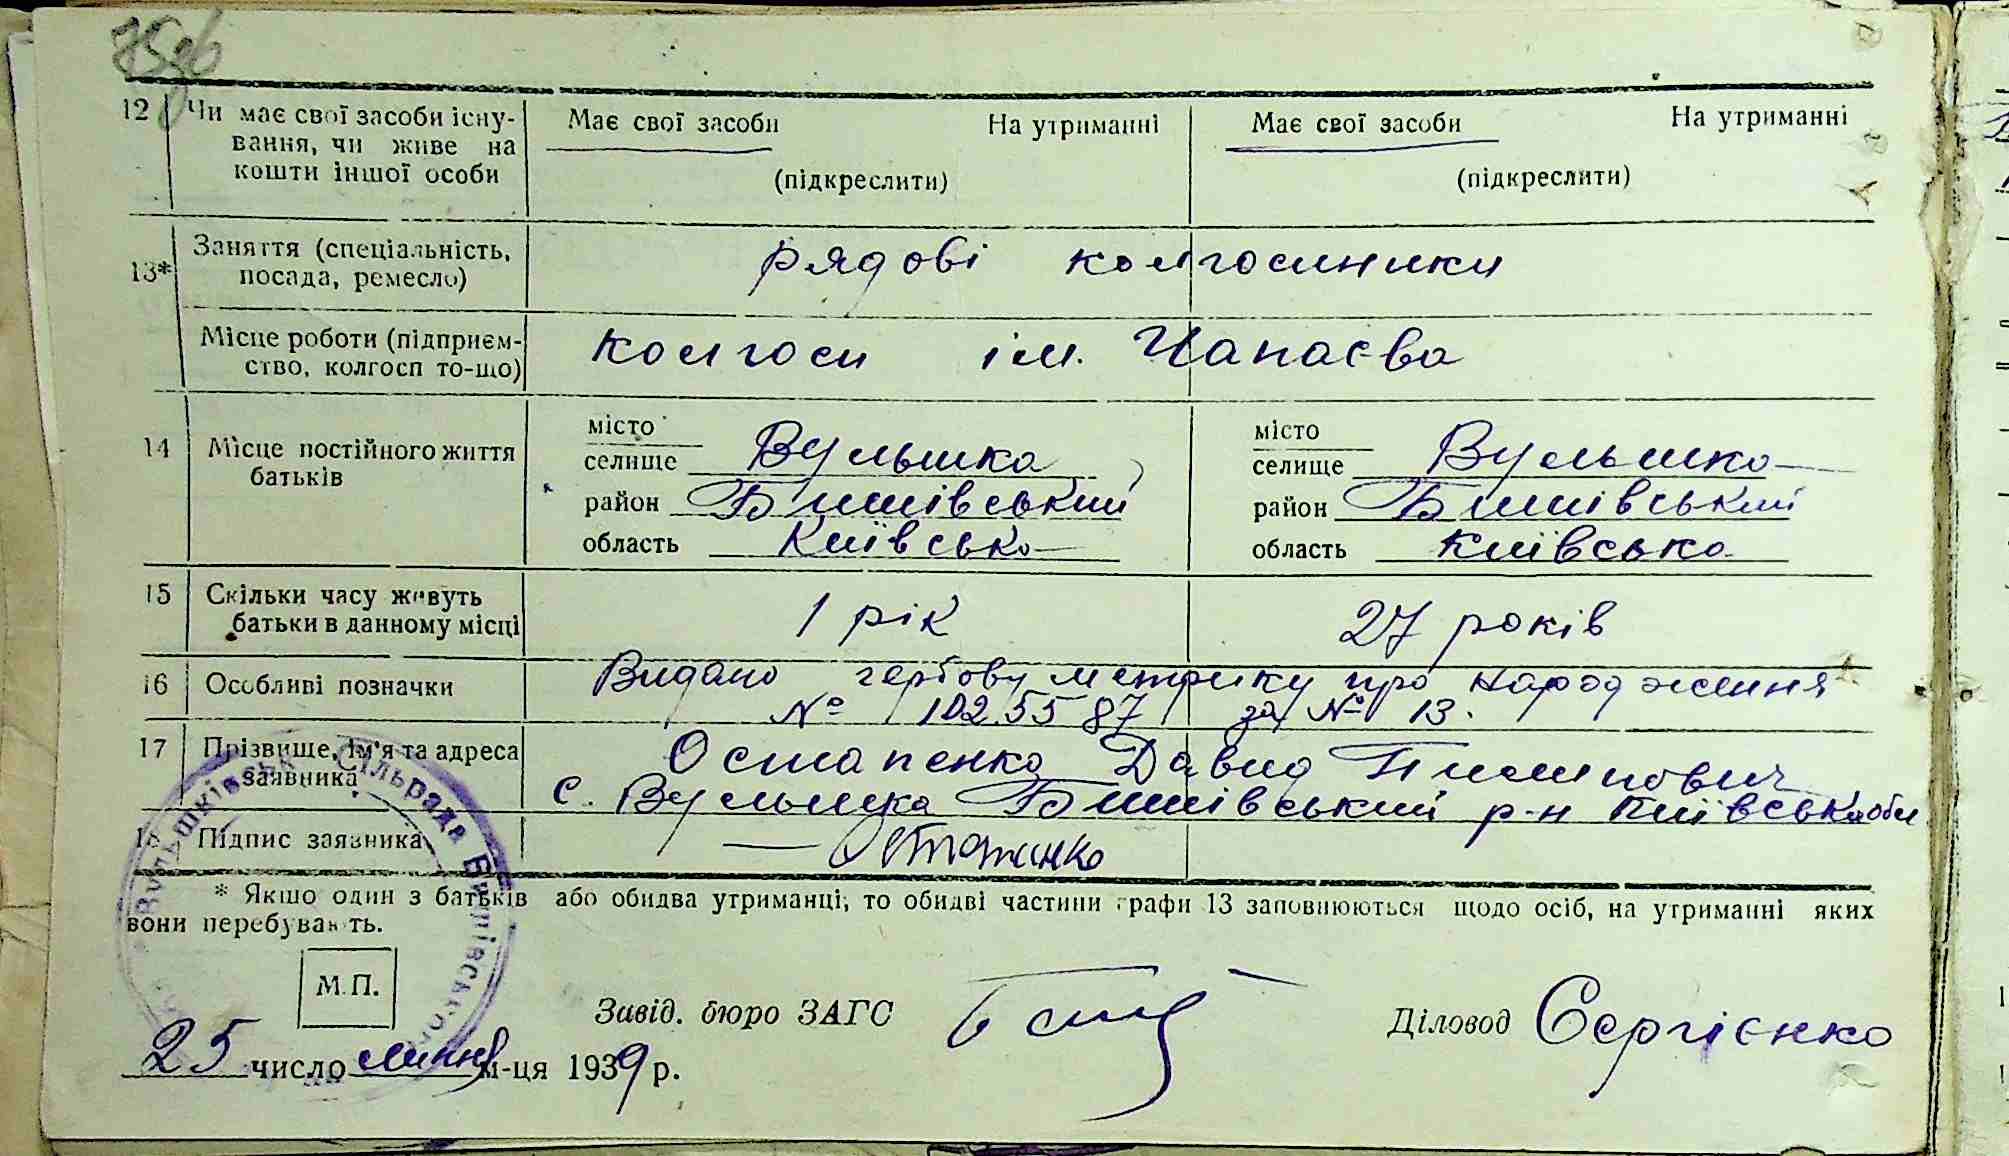 12 Чи має свої засоби існу-
вання, чи живе на
кошти іншої особи
Має свої засоби На утриманні
(підкреслити)
Має свої засоби На утриманні
(підкреслити)
13* Заняття (спеціальність,
посада, ремесло)
рядові колгоспники
Місце роботи (підприєм-
ство, колгосп то-що)
колгосп ім. Чапаєва
14 Місце постійного життя
батьків
місто
селище Вульшка
район Бишівський
область Київська
місто
селище Вульшка
район Бишівський
область Київська
15 Скільки часу живуть
батьки в данному місці
1 рік
27 років
16 Особливі позначки
Видано гербову метрику про народження
№ 1025587 за № 13.
17 Прізвище, ім'я та адреса
заявника
Остапенко Давид Пилипович
с. Вульшка Бишівський р-н Київська обл
18 Підпис заявника
Остапенко
* Якшо один з батьків або обидва утриманці, то обидві частини графи 13 заповнюються щодо осіб, на утриманні яких
вони перебувають.
Вульшківськ Сільрада Бишівського
М.П.
Завід. бюро ЗАГС
Діловод Сергієнко
25 число липня м-ця 1939 р.